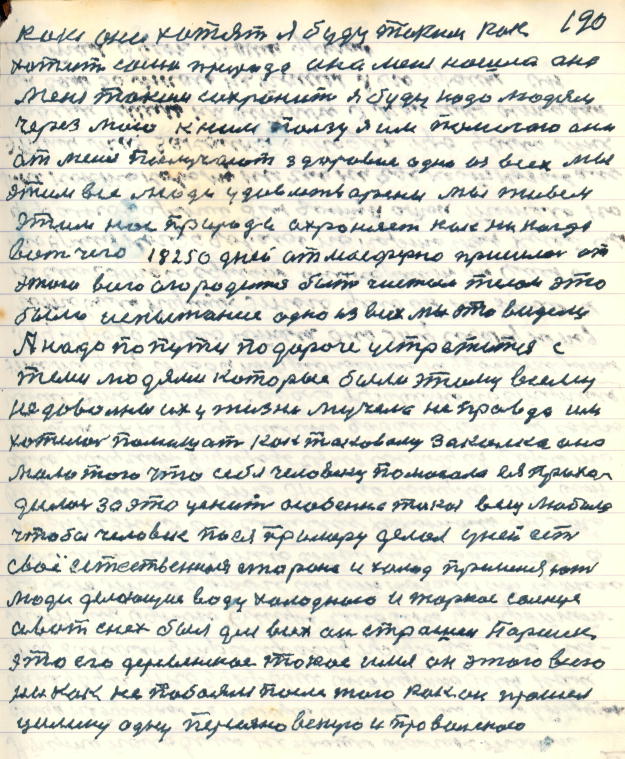 190
как они хотят я буду таким как
хотит сама природа она меня нашла она
меня таким сохронит я буду надо людям
через мого к ним ползу я им помогаю они
от меня получают здоровие одно из всех мы
этим все люди удовлютварены мы живем
этим нас природа охроняет как никогда
вот чего 18250 дней атмосферно пришлос от
этого всего огородится быть чистим телом это
было испытание одно из всех мы это видели
А надо по пути по дороге устретится с
теми людями которые были этому всему
недоволни их у жизни мучела неправда им
хотилос помищат как таковому закалка она
мало того что себя человеку помогала ея прихо
дилос за это ценить особенно такая вещ любила
чтобы человик пося примеру делал у ней ест
своё естественная старона и холод применяют
люди делающие воду холодною и жаркое солнце
а вот снех был для всех он страшен Паршек
это его деревинское токое имя он этого всего
ни как не побоялся после того как он прошел
целину одну перенановскую и провалского